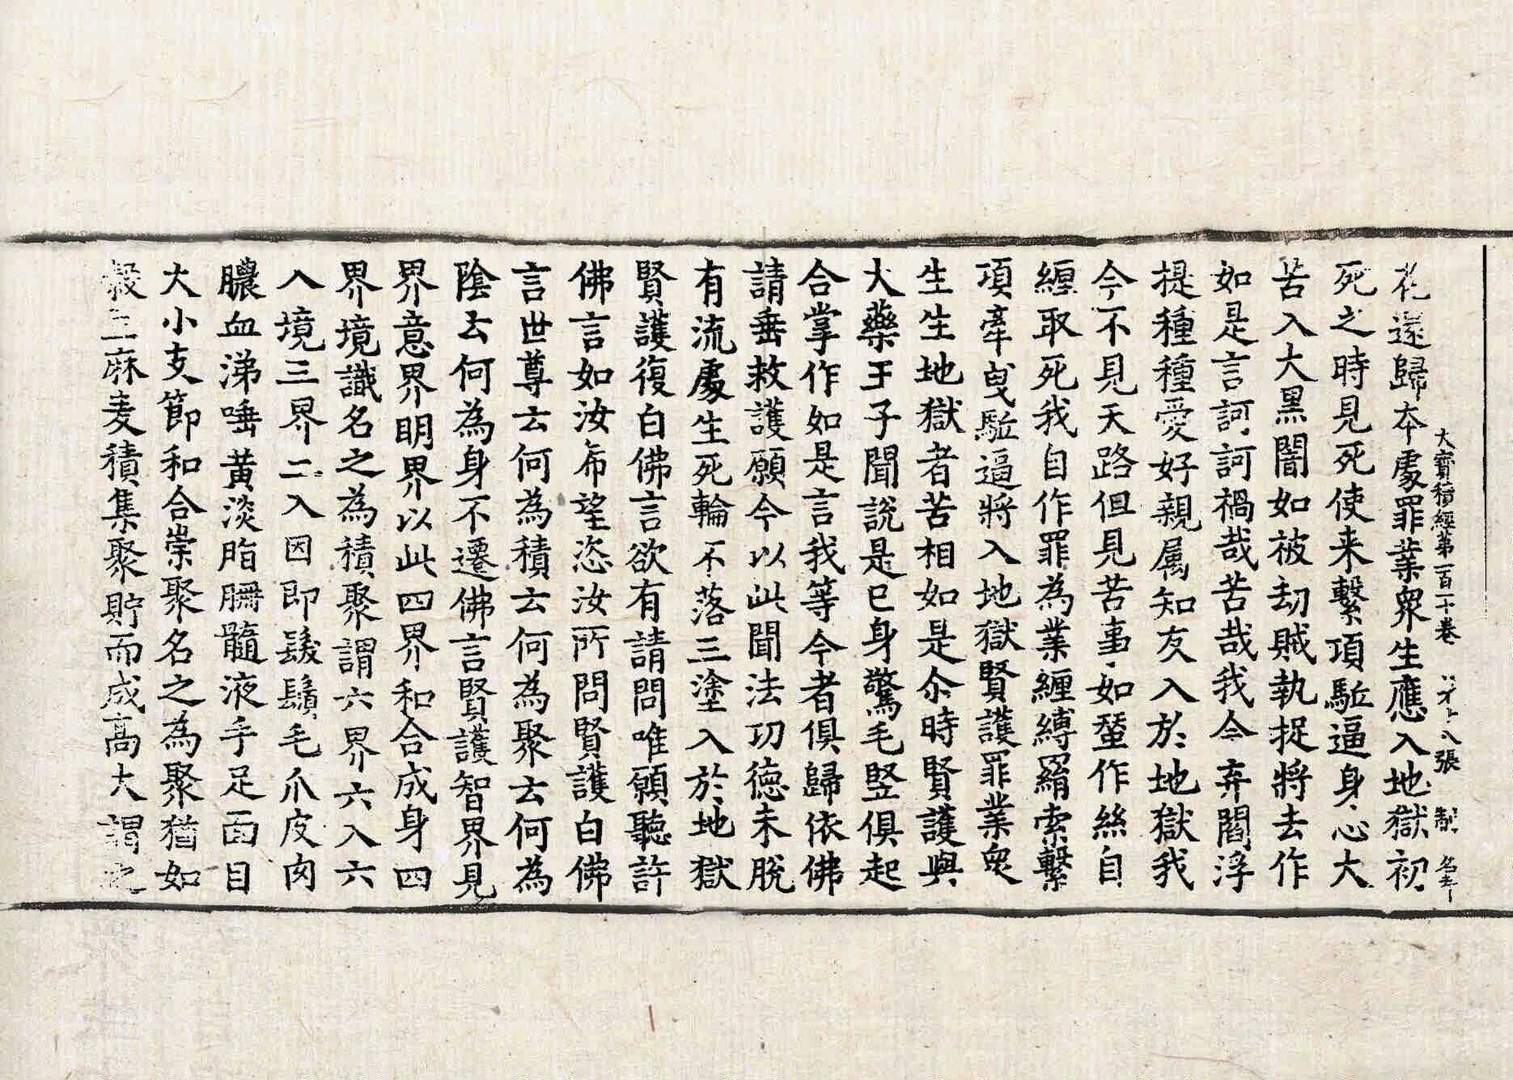 大寶積經第一百一十卷 第十八張 制
花還歸本處罪業衆生應入地獄初
死之時見死使来繫項駈逼身心大
苦入大黑闇如被劫賊執捉將去作
如是言訶訶禍哉苦哉我今弃閻浮
提種種愛好親属知友入於地獄我
今不見天路但見苦事如蚕作絲自
纏取死我自作罪為業纏縛羂索繫
項牽曵駈逼將入地獄賢護罪業衆
生生地獄者苦相如是尒時賢護與
大藥王子聞說是已身驚毛竪俱起
合掌作如是言我等今者俱歸依佛
請垂救護願今以此聞法功德未脫
有流處生死輪不落三塗入於地獄
賢護復白佛言欲有請問唯願聽許
佛言如汝希望恣汝所問賢護白佛
言世尊云何為積云何為聚云何為
陰云何為身不遷佛言賢護智界見
界意界明界以此四界和合成身四
界境識名之為積聚謂六界六入六
入境三界二入因即髮鬚毛爪皮肉
膿血涕唾黃淡脂䐉髓液手足面目
大小支節和合崇聚名之為聚猶如
穀豆麻麦積集聚貯而成高大謂之